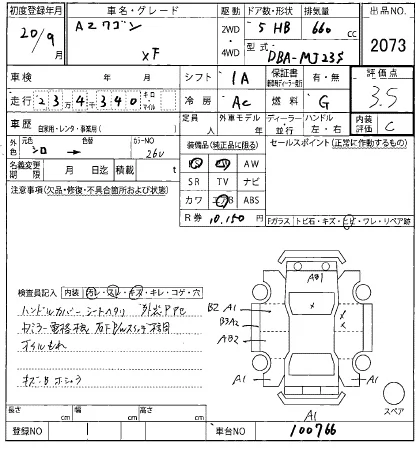 初度登録年月 車名・グレード 駆動 ドア数・形状 排気量 出品NO.
20/9 月 AZワゴン XF 2WD・4WD 5 HB 660 cc 2073
型式 DBA-MJ23S
車検 年 月 シフト IA 保証書 有・無 評価点
走行 23万4340 キロ マイル 冷房 AC 燃料 G 3.5
車歴 自家用・レンタ・事業用( ) 定員 人 外車モデル 年 ディーラー・並行 ハンドル 左・右 内装評価 C
外色 元色 シロ → 色替 カラーNO 26U 装備品(純正品に限る) セールスポイント(正常に作動するもの)
名義変更期限 月 日迄 積載 t PS PW AW
注意事項(欠品・修復・不具合箇所および状態) SR TV ナビ
カワ エアB ABS
R券 10,150円 Fガラス トビ石・キズ・ヒビ・ワレ・リペア跡
AB1
検査員記入 内装 汚レ・スレ・キズ・キレ・コゲ・穴
ハンドルカバー シートヘタリ
B2 A1
B3A2
AB2
オイルもれ
A1 A1
A1
スペア
長さ cm 幅 cm 高さ cm
登録NO 車台NO 100766